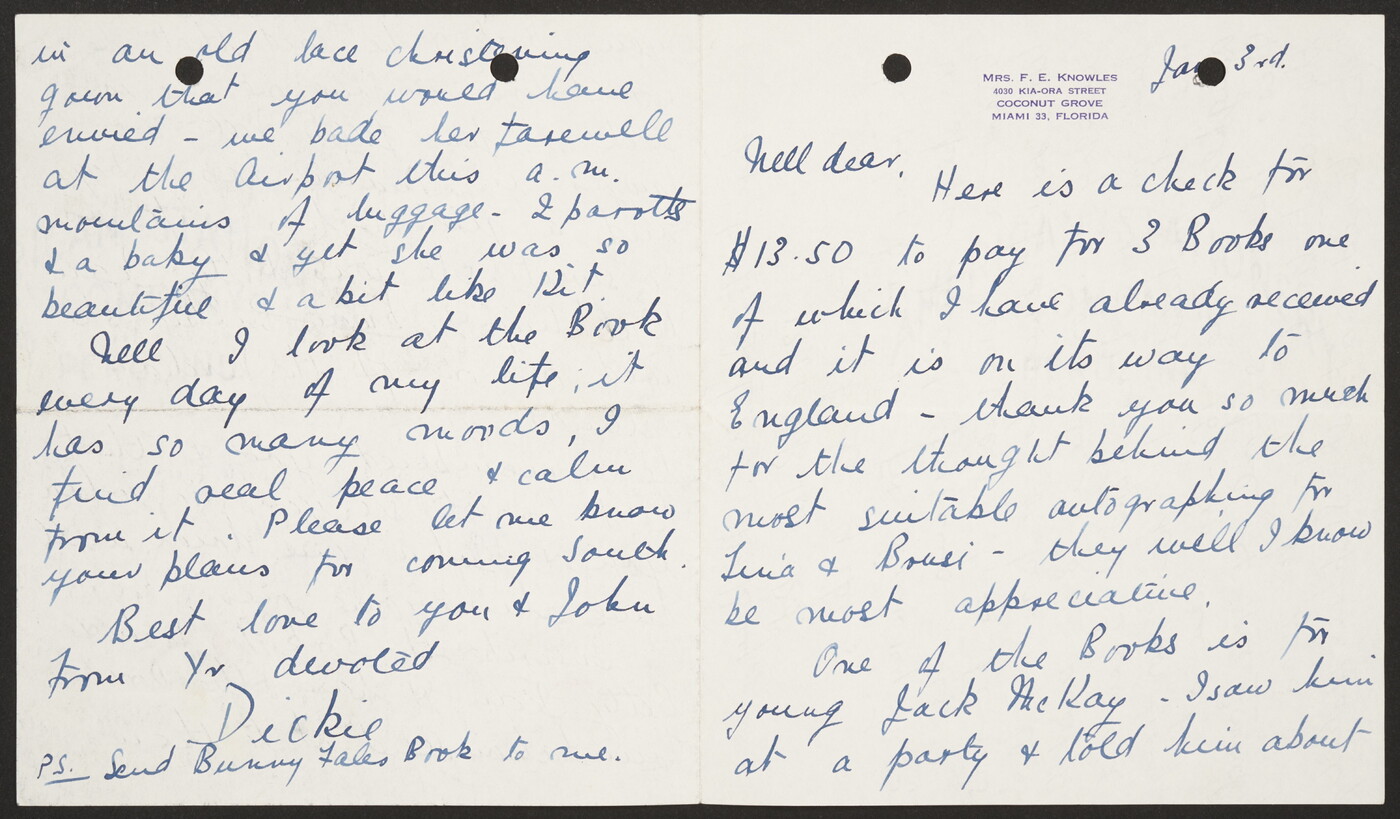 MRS. F. E. KNOWLES
4030 KIA-ORA STREET
COCONUT GROVE
MIAMI 33, FLORIDA
Jan 3rd.
Nell dear,
Here is a check for
$13.50 to pay for 3 Books one
of which I have already received
and it is on its way to
England - thank you so much
for the thought behind the
most suitable autographing for
& - they will I know
be most appreciative.
One of the Books is for
young Jack McKay - I saw him
at a party & told him about
in an old lace christening
gown that you would have
envied - we bade her farewell
at the Airport this a.m.
mountains of luggage - 2 parotts
& a baby & yet she was so
beautiful & a bit like Kit.
Nell I look at the Book
every day of my life; it
has so many moods, I
find real peace & calm
from it. Please let me know
your plans for coming South.
Best love to you & John
from Yr devoted
Dickie
P.S. Send Bunny Book to me.